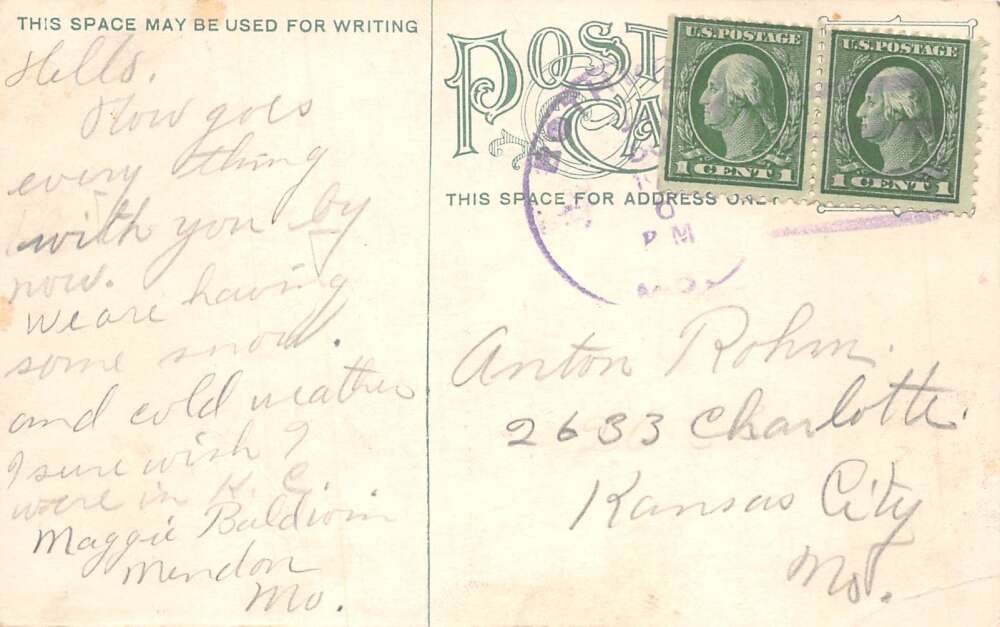 THIS SPACE MAY BE USED FOR WRITING
Hello.
How goes
every thing
with you by
now.
We are having
some snow.
and cold weather
I sure wish I
were in K. C.
Maggie Baldwin
Mendon
Mo.
POST
CA
U.S. POSTAGE
1 CENT 1
U.S. POSTAGE
1 CENT 1
THIS SPACE FOR ADDRESS ONLY
PM
MO.
Anton Rohm.
2633 Charlotte.
Kansas City
Mo.